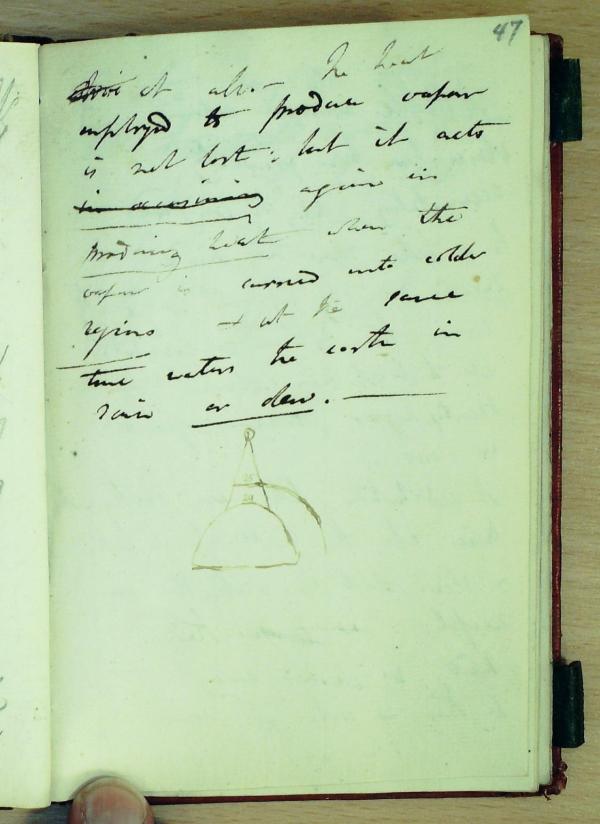 47
it also - The heat
employed to produce vapour
is not lost; but it acts
again in
producing heat when the
vapour is carried into colder
regions & at the same
time waters the earth in
rain or dew. —
20